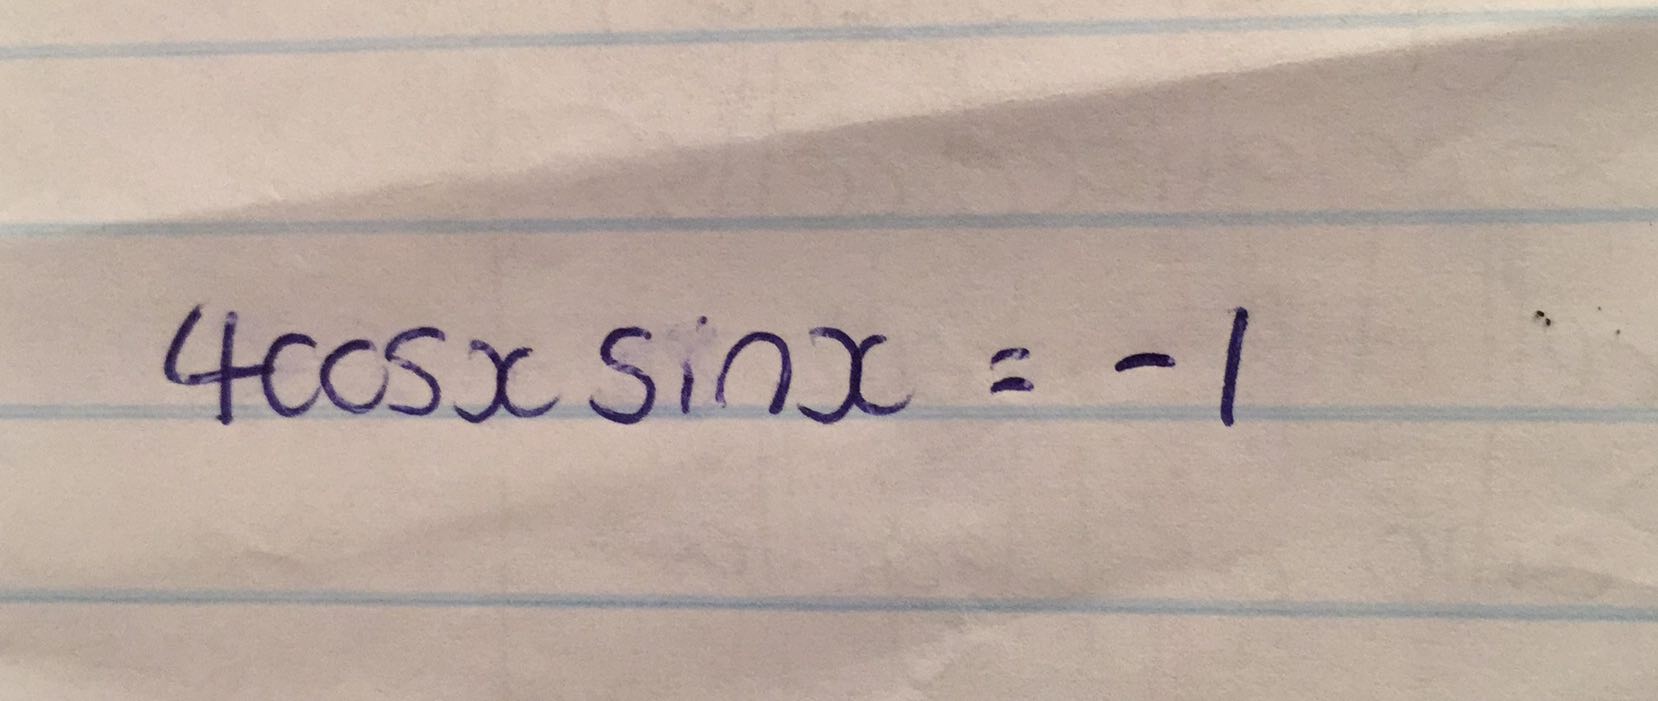 4cosx sinx = -1